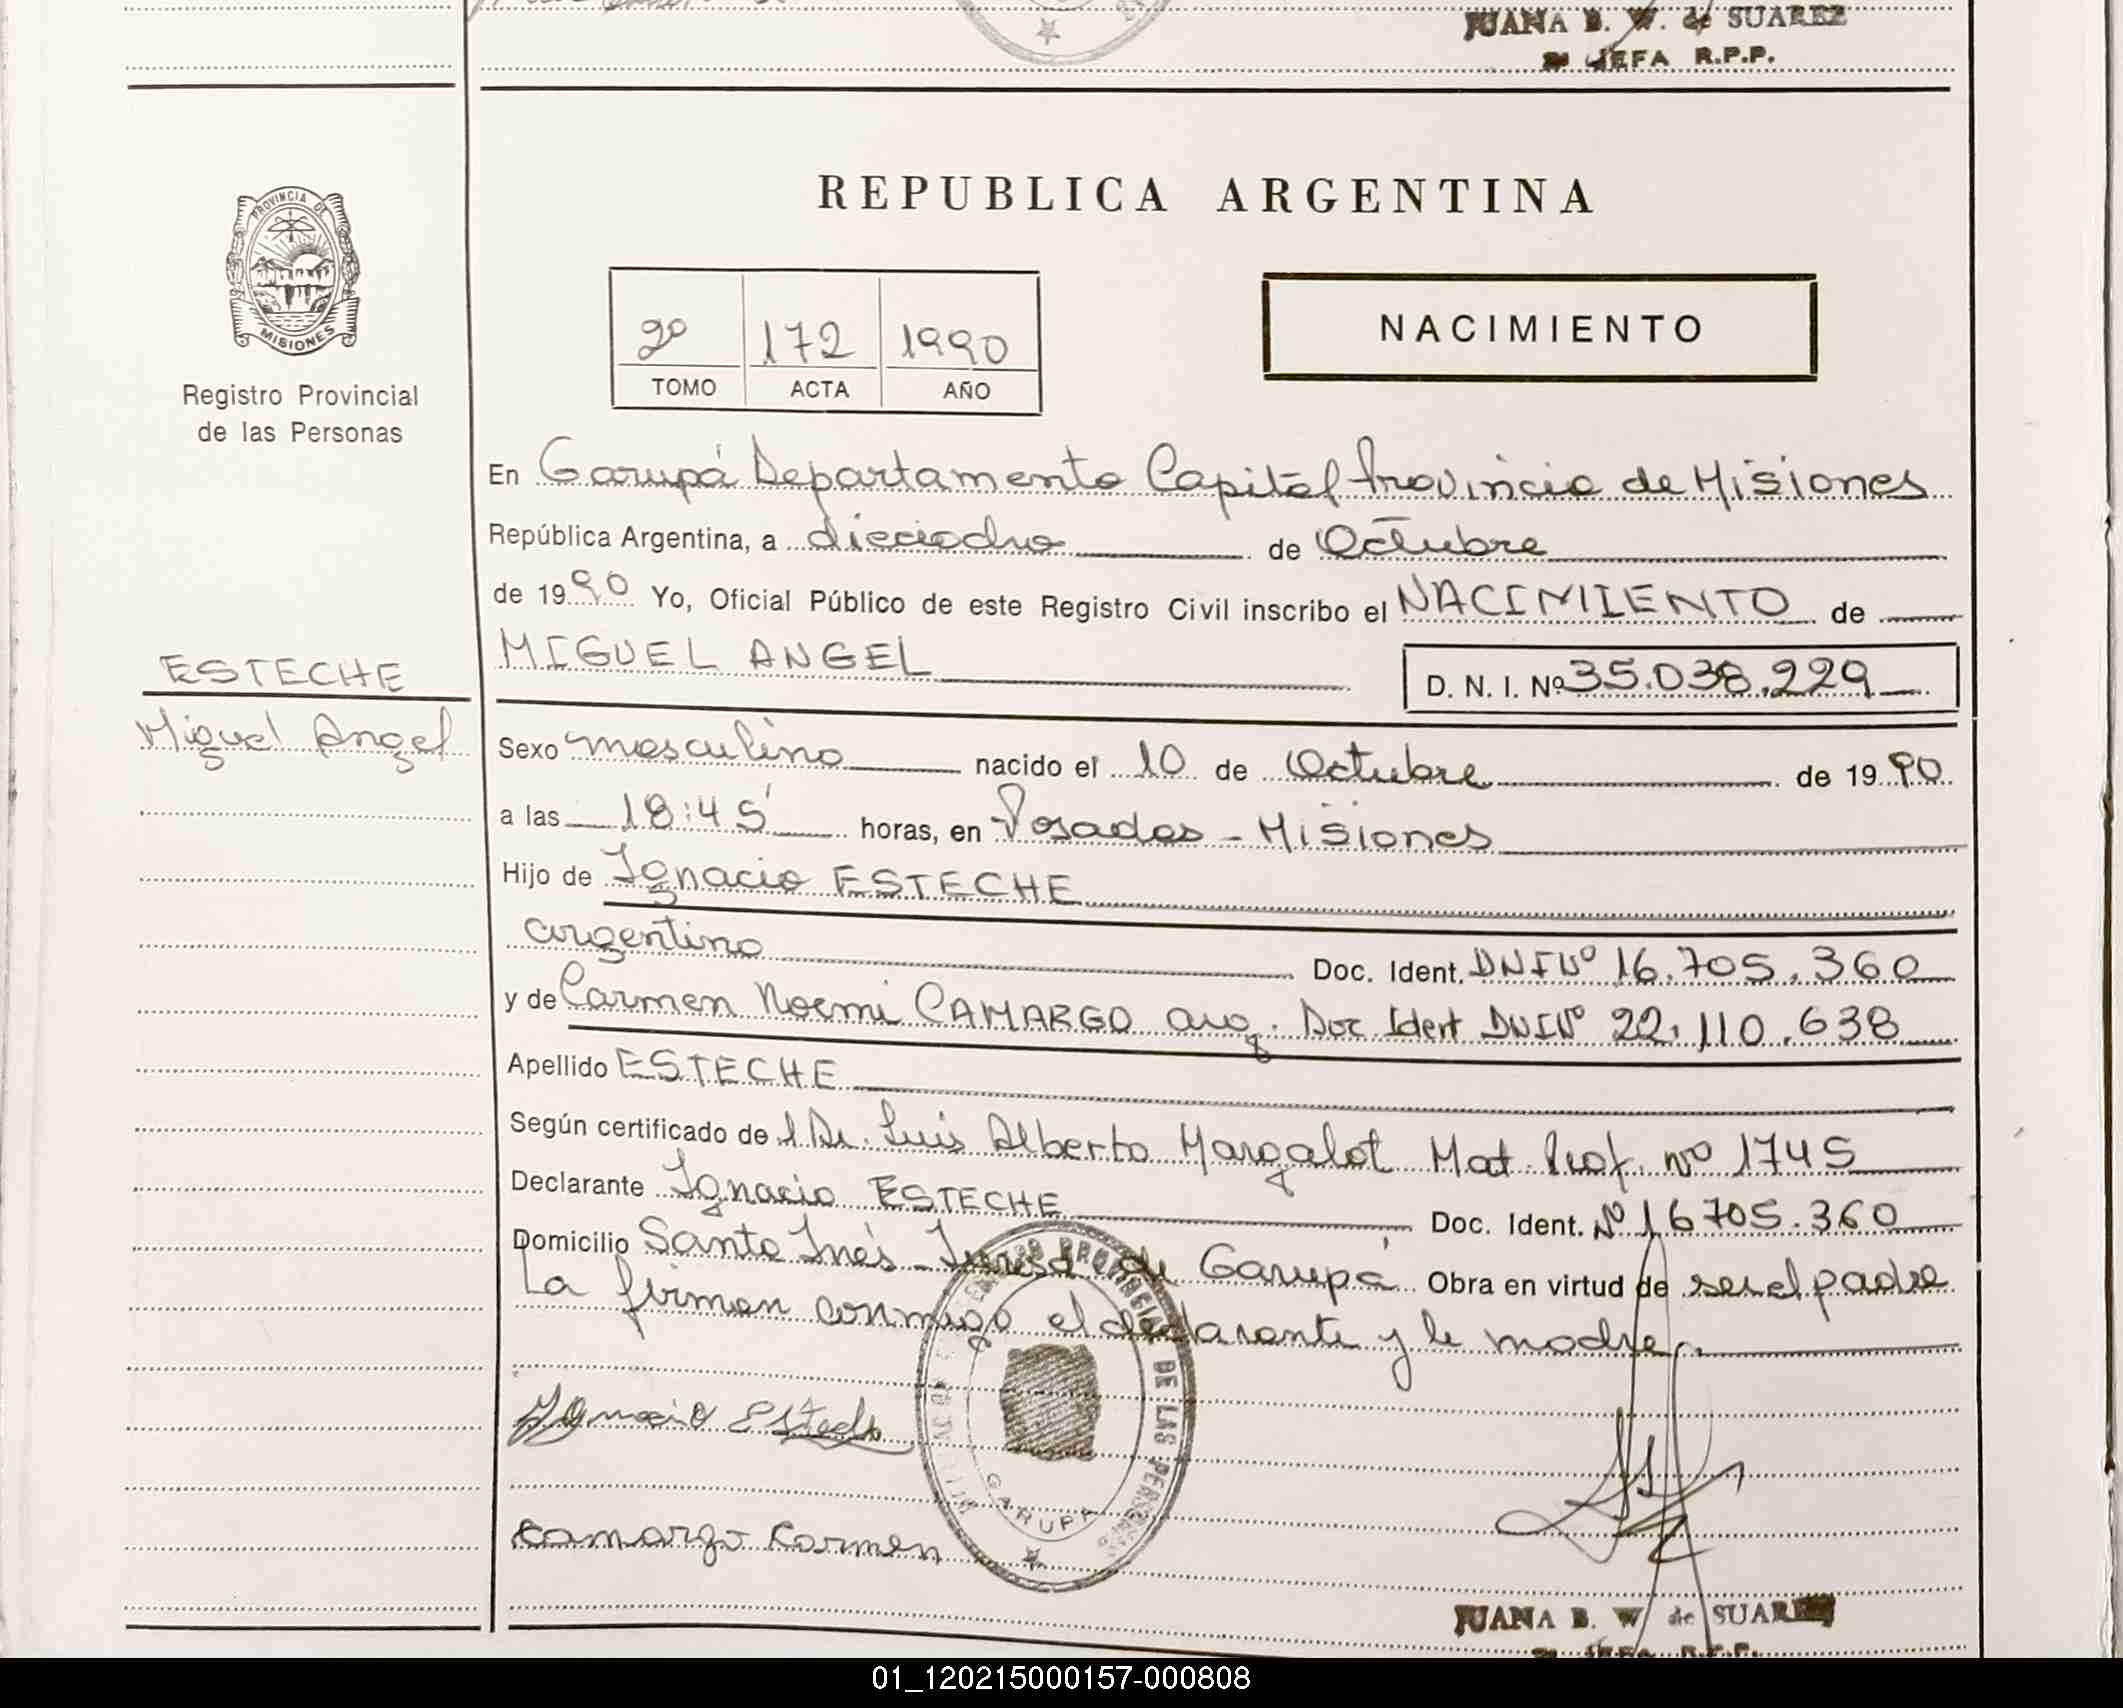 JUANA B. W. de SUAREZ
JEFA R.P.P.
PROVINCIA DE
MISIONES
Registro Provincial
de las Personas
REPUBLICA ARGENTINA
2º 172 1990
TOMO ACTA AÑO
NACIMIENTO
En Garupá Departamento Capital Provincia de Misiones
República Argentina, a dieciocho de Octubre
de 1990 Yo, Oficial Público de este Registro Civil inscribo el NACIMIENTO de
ESTECHE
Miguel Angel
MIGUEL ANGEL
D. N. I. Nº 35.038.229
Sexo masculino nacido el 10 de Octubre de 1990
a las 18:45' horas, en Posadas - Misiones
Hijo de Ignacio ESTECHE
argentino Doc. Ident. DNI Nº 16.705.360
y de Carmen Noemi CAMARGO arg. Doc Ident DNI Nº 22.110.638
Apellido ESTECHE
Según certificado del Dr. Luis Alberto Margalot Mat. Prof. nº 1745
Declarante Ignacio ESTECHE Doc. Ident. Nº 16705.360
Domicilio Santa Inés - de Garupá Obra en virtud de ser el padre
La firman conmigo el declarante y la madre.
Ignacio Esteche
PROVINCIAL DE LAS PERSONAS
GARUPA
Camargo Carmen
JUANA B. W de SUAREZ
JEFA R.P.P.
01_120215000157-000808